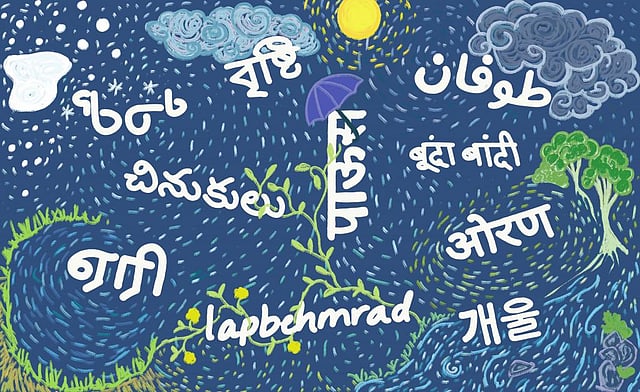 वृष्टि
طوفان
पाऊस
बूंदा बांदी
చినుకులు
ओरण
ஏரி
lapbehmrad
개울